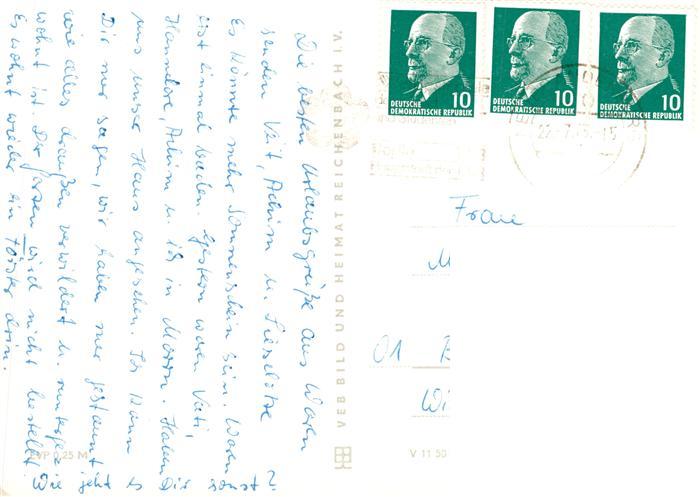 Die besten Urlaubsgrüße aus Waren
senden Veit, Achim u. Lieselotte
Es könnte mehr Sonnenschein sein. Waren
erst einmal baden. Gestern waren Vati,
Hannelore, Achim u. ich in Haben
uns unser Haus angesehen. Ich kann es
Dir nur sagen, wir haben nur gestaunt
wie alles draußen verwildert u.
wohnt ist. Der Garten wird nicht bestellt.
Es wohnt wieder ein Förster drin.
Wie geht
Dir sonst?
EVP 0,25 M
VEB BILD UND HEIMAT REICHENBACH I. V.
V 11 50
DEUTSCHE
DEMOKRATISCHE REPUBLIK
10
DEUTSCHE
DEMOKRATISCHE REPUBLIK
10
DEUTSCHE
DEMOKRATISCHE REPUBLIK
10
Frau
M
01
Wi